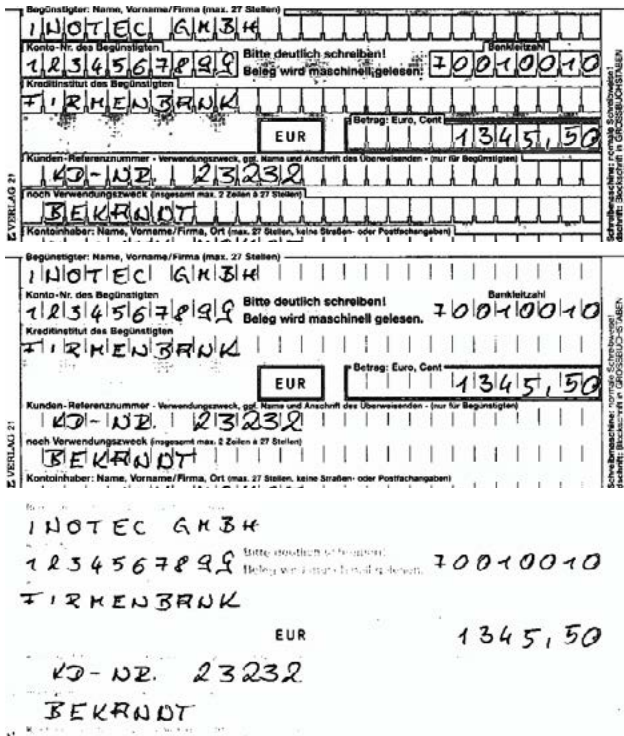 Begünstigter: Name, Vorname/Firma (max. 27 Stellen)
INOTEC GMBH
Konto-Nr. des Begünstigten
Bitte deutlich schreiben!
Bankleitzahl
1234567899
Beleg wird maschinell gelesen.
70010010
Kreditinstitut des Begünstigten
FIRMENBANK
Betrag: Euro, Cent
EUR
1345,50
Kunden-Referenznummer - Verwendungszweck, ggf. Name und Anschrift des Überweisenden - (nur für Begünstigten)
KD-NR. 23232
noch Verwendungszweck (insgesamt max. 2 Zeilen à 27 Stellen)
BEKANNDT
Kontoinhaber: Name, Vorname/Firma, Ort (max. 27 Stellen, keine Straßen- oder Postfachangaben)
VERLAG 21
Schreibmaschine: normale Schreibweise!
dschrift: Blockschrift in GROSSBUCHSTABEN
Begünstigter: Name, Vorname/Firma (max. 27 Stellen)
INOTEC GMBH
Konto-Nr. des Begünstigten
Bitte deutlich schreiben!
Bankleitzahl
1234567899
Beleg wird maschinell gelesen.
70010010
Kreditinstitut des Begünstigten
FIRMENBANK
Betrag: Euro, Cent
EUR
1345,50
Kunden-Referenznummer - Verwendungszweck, ggf. Name und Anschrift des Überweisenden - (nur für Begünstigten)
KD-NR. 23232
noch Verwendungszweck (insgesamt max. 2 Zeilen à 27 Stellen)
BEKANNDT
Kontoinhaber: Name, Vorname/Firma, Ort (max. 27 Stellen, keine Straßen- oder Postfachangaben)
VERLAG 21
Schreibmaschine: normale Schreibweise!
dschrift: Blockschrift in GROSSBUCHSTABEN
INOTEC GMBH
Bitte deutlich schreiben!
1234567899
Beleg wird maschinell gelesen.
70010010
FIRMENBANK
EUR
1345,50
KD-NR. 23232
BEKANNDT